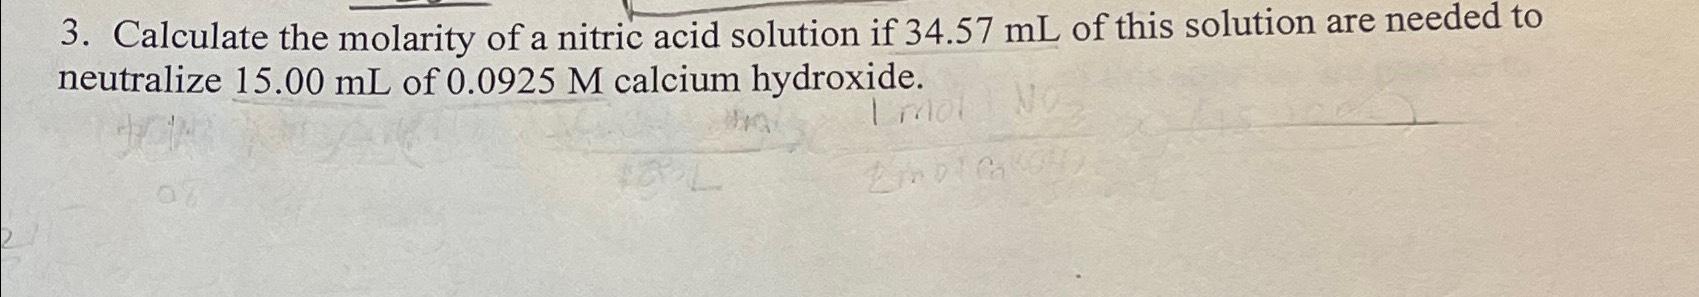 3. Calculate the molarity of a nitric acid solution if 34.57 mL of this solution are needed to
neutralize 15.00 mL of 0.0925 M calcium hydroxide.
1 mol NO3
L
2 mol Ca
2